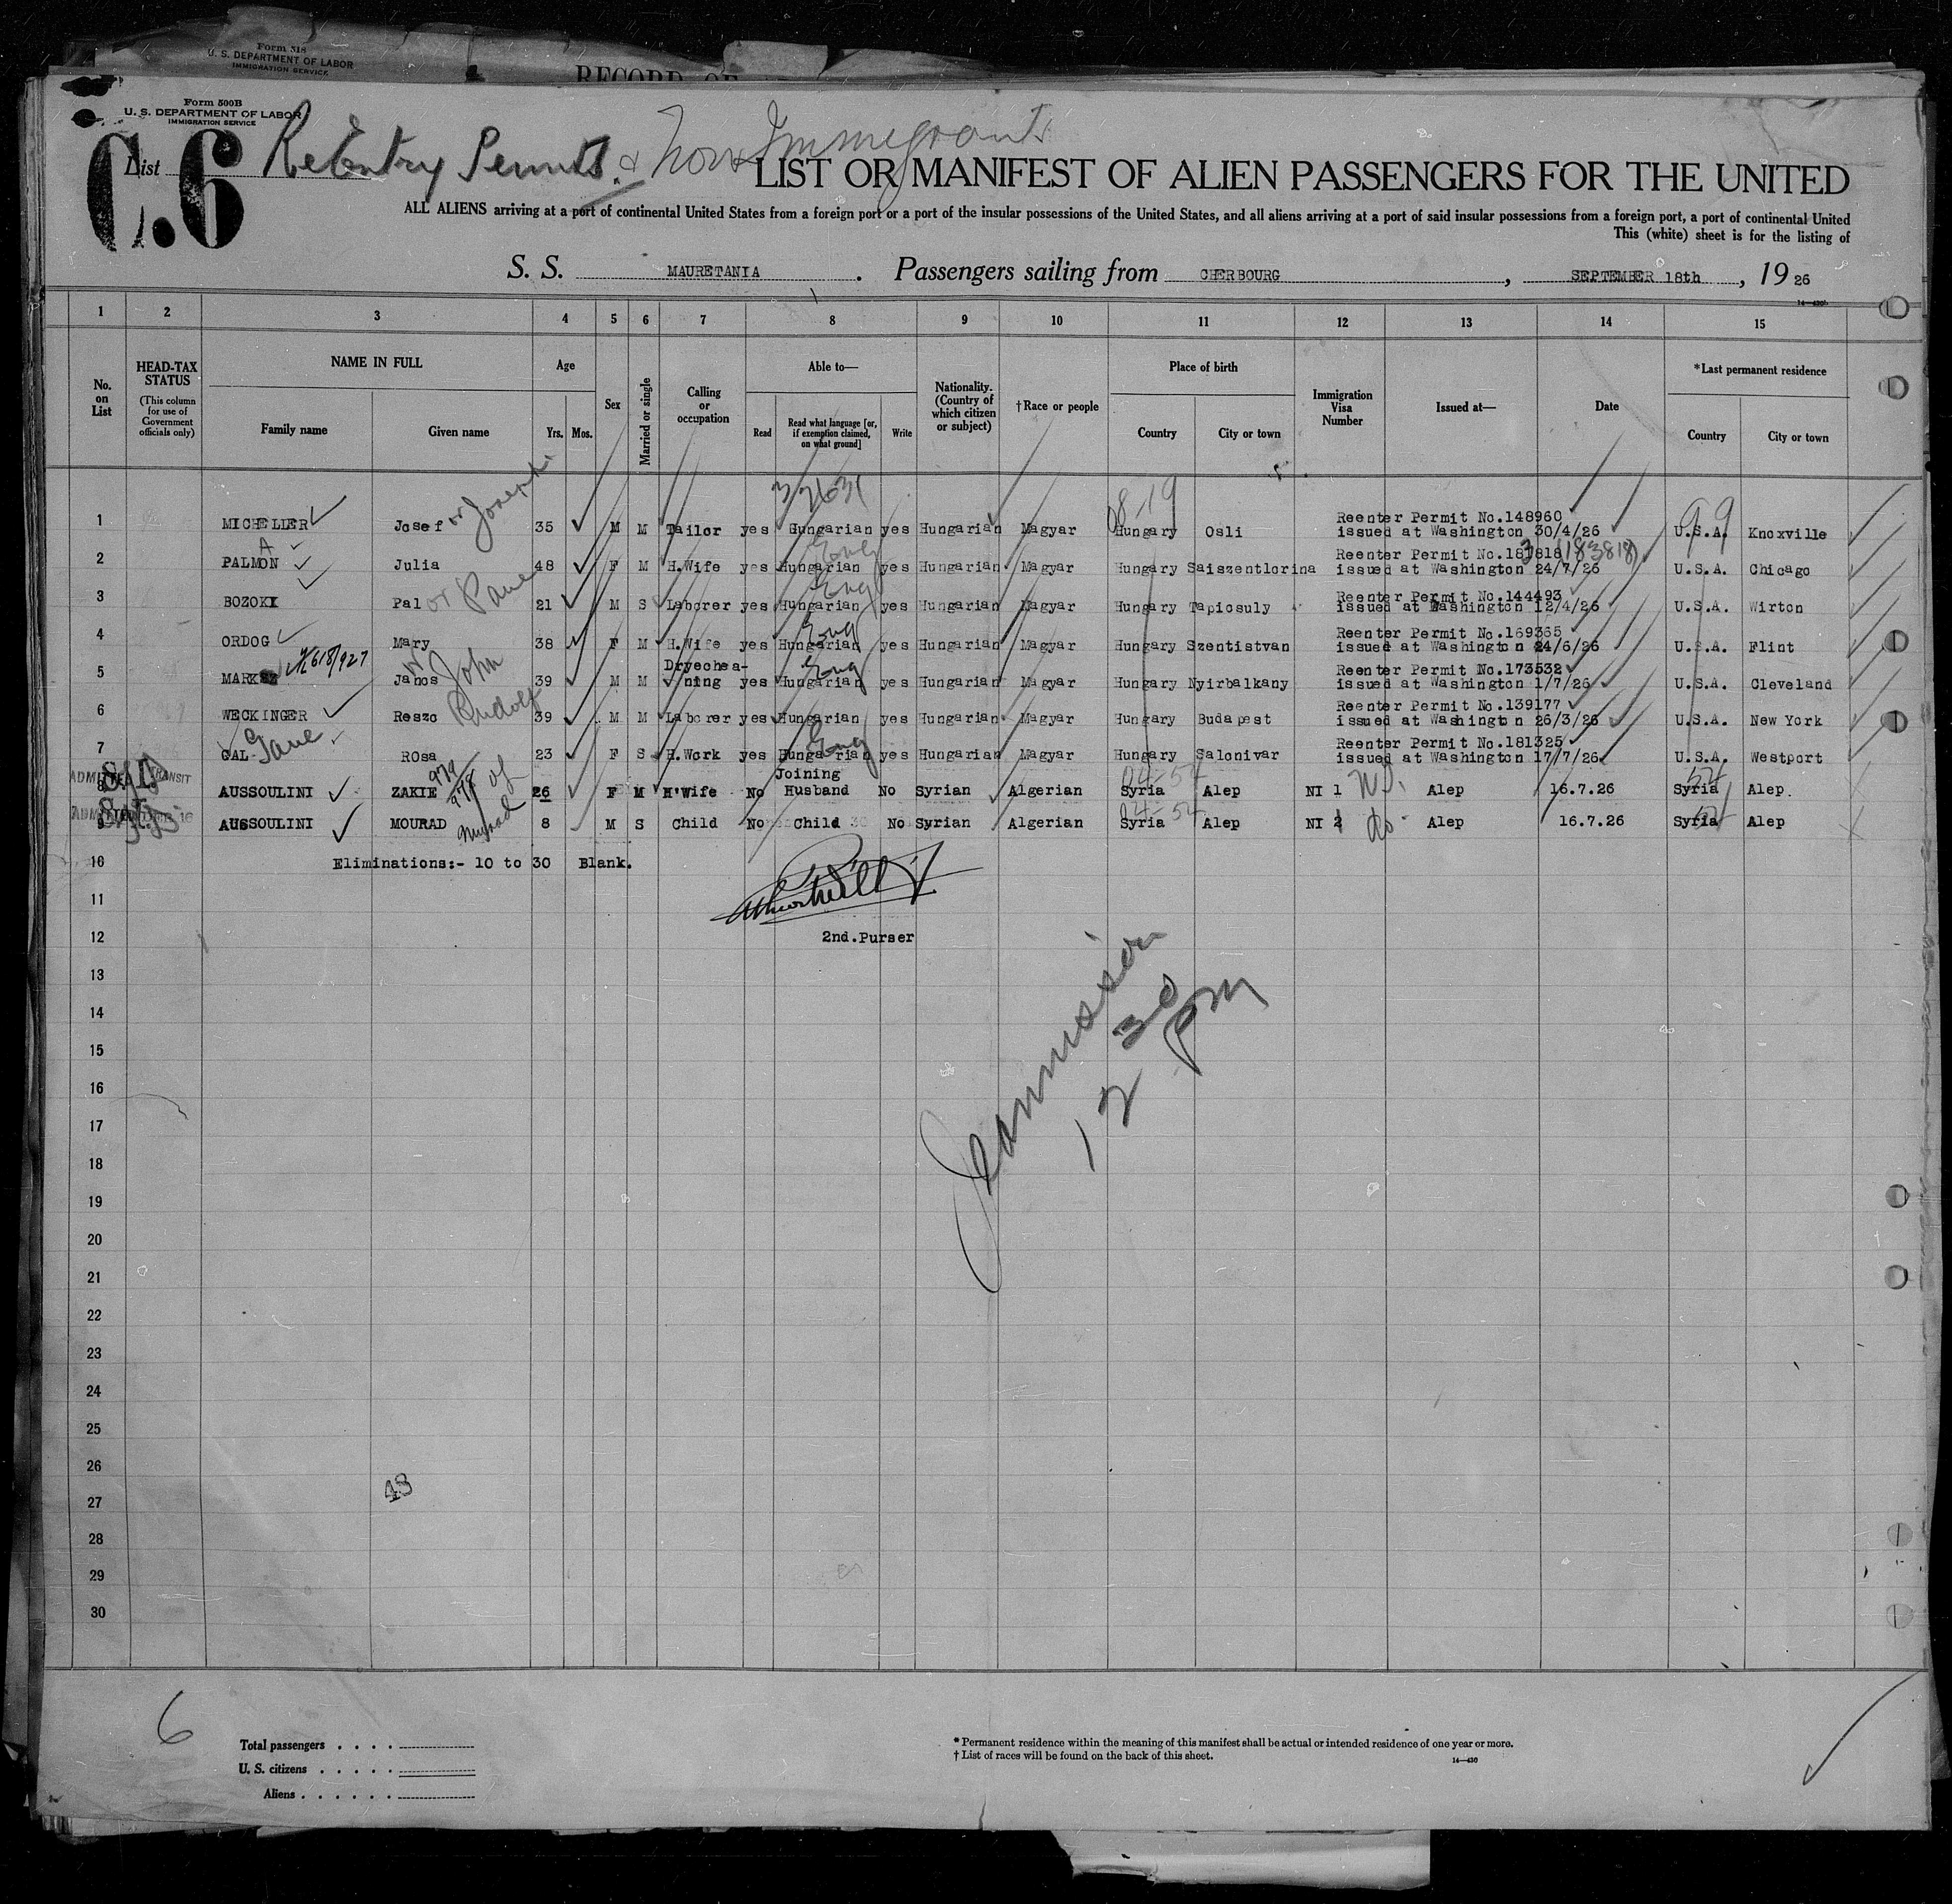 Form 518
U. S. DEPARTMENT OF LABOR
IMMIGRATION SERVICE
RECORD OF
Form 500B
U. S. DEPARTMENT OF LABOR
IMMIGRATION SERVICE
List C.6 ReEntry Permits. & Non Immigrants
LIST OR MANIFEST OF ALIEN PASSENGERS FOR THE UNITED
ALL ALIENS arriving at a port of continental United States from a foreign port or a port of the insular possessions of the United States, and all aliens arriving at a port of said insular possessions from a foreign port, a port of continental United
This (white) sheet is for the listing of
S. S. MAURETANIA. Passengers sailing from CHERBOURG, SEPTEMBER 18th, 19 26
1 2 3 4 5 6 7 8 9 10 11 12 13 14 15
No. on List
HEAD-TAX STATUS
(This column for use of Government officials only)
NAME IN FULL
Family name Given name
Age
Yrs. Mos.
Sex
Married or single
Calling or occupation
Able to—
Read
Read what language [or, if exemption claimed, on what ground]
Write
Nationality. (Country of which citizen or subject)
† Race or people
Place of birth
Country City or town
Immigration Visa Number
Issued at—
Date
* Last permanent residence
Country City or town
1 MICHELLER Josef or Joseph 35 M M Tailor yes Hungarian yes Hungarian Magyar Hungary Osli Reenter Permit No.148960 issued at Washington 30/4/26 U.S.A. Knoxville
2 PALMON A Julia 48 F M H.Wife yes Hungarian Eng yes Hungarian Magyar Hungary Saiszentlorina Reenter Permit No.181818 (183818) issued at Washington 24/7/26 U.S.A. Chicago
3 BOZOKI Pal or Paul 21 M S Laborer yes Hungarian Eng yes Hungarian Magyar Hungary Tapiosuly Reenter Permit No.144493 issued at Washington 12/4/26 U.S.A. Wirton
4 ORDOG Mary 38 F M H.Wife yes Hungarian Eng yes Hungarian Magyar Hungary Szentistvan Reenter Permit No.169365 issued at Washington 24/6/26 U.S.A. Flint
5 Janos or John 39 M M Dryechea-ning yes Hungarian Eng yes Hungarian Magyar Hungary Nyirbalkany Reenter Permit No.173532 issued at Washington 1/7/26 U.S.A. Cleveland
6 WECKINGER Reszo Rudolf 39 M M Laborer yes Hungarian yes Hungarian Magyar Hungary Budapest Reenter Permit No.139177 issued at Washington 26/3/26 U.S.A. New York
7 GAL Rosa 23 F S H.Work yes Hungarian Eng yes Hungarian Magyar Hungary Salonivar Reenter Permit No.181325 issued at Washington 17/7/26 U.S.A. Westport
8 AUSSOULINI ZAKIE 26 F M H'Wife No Joining Husband No Syrian Algerian Syria Alep NI 1 Alep 16.7.26 Syria Alep.
9 AUSSOULINI MOURAD Murad 8 M S Child No Child No Syrian Algerian Syria Alep NI 2 do Alep 16.7.26 Syria Alep
10 Eliminations:- 10 to 30 Blank.
11
12 2nd.Purser
13
14
15
16
17
18
19
20
21
22
23
24
25
26
27
28
29
30
12 30 pm
48
6
Total passengers
U. S. citizens
Aliens
* Permanent residence within the meaning of this manifest shall be actual or intended residence of one year or more.
† List of races will be found on the back of this sheet.
14—430